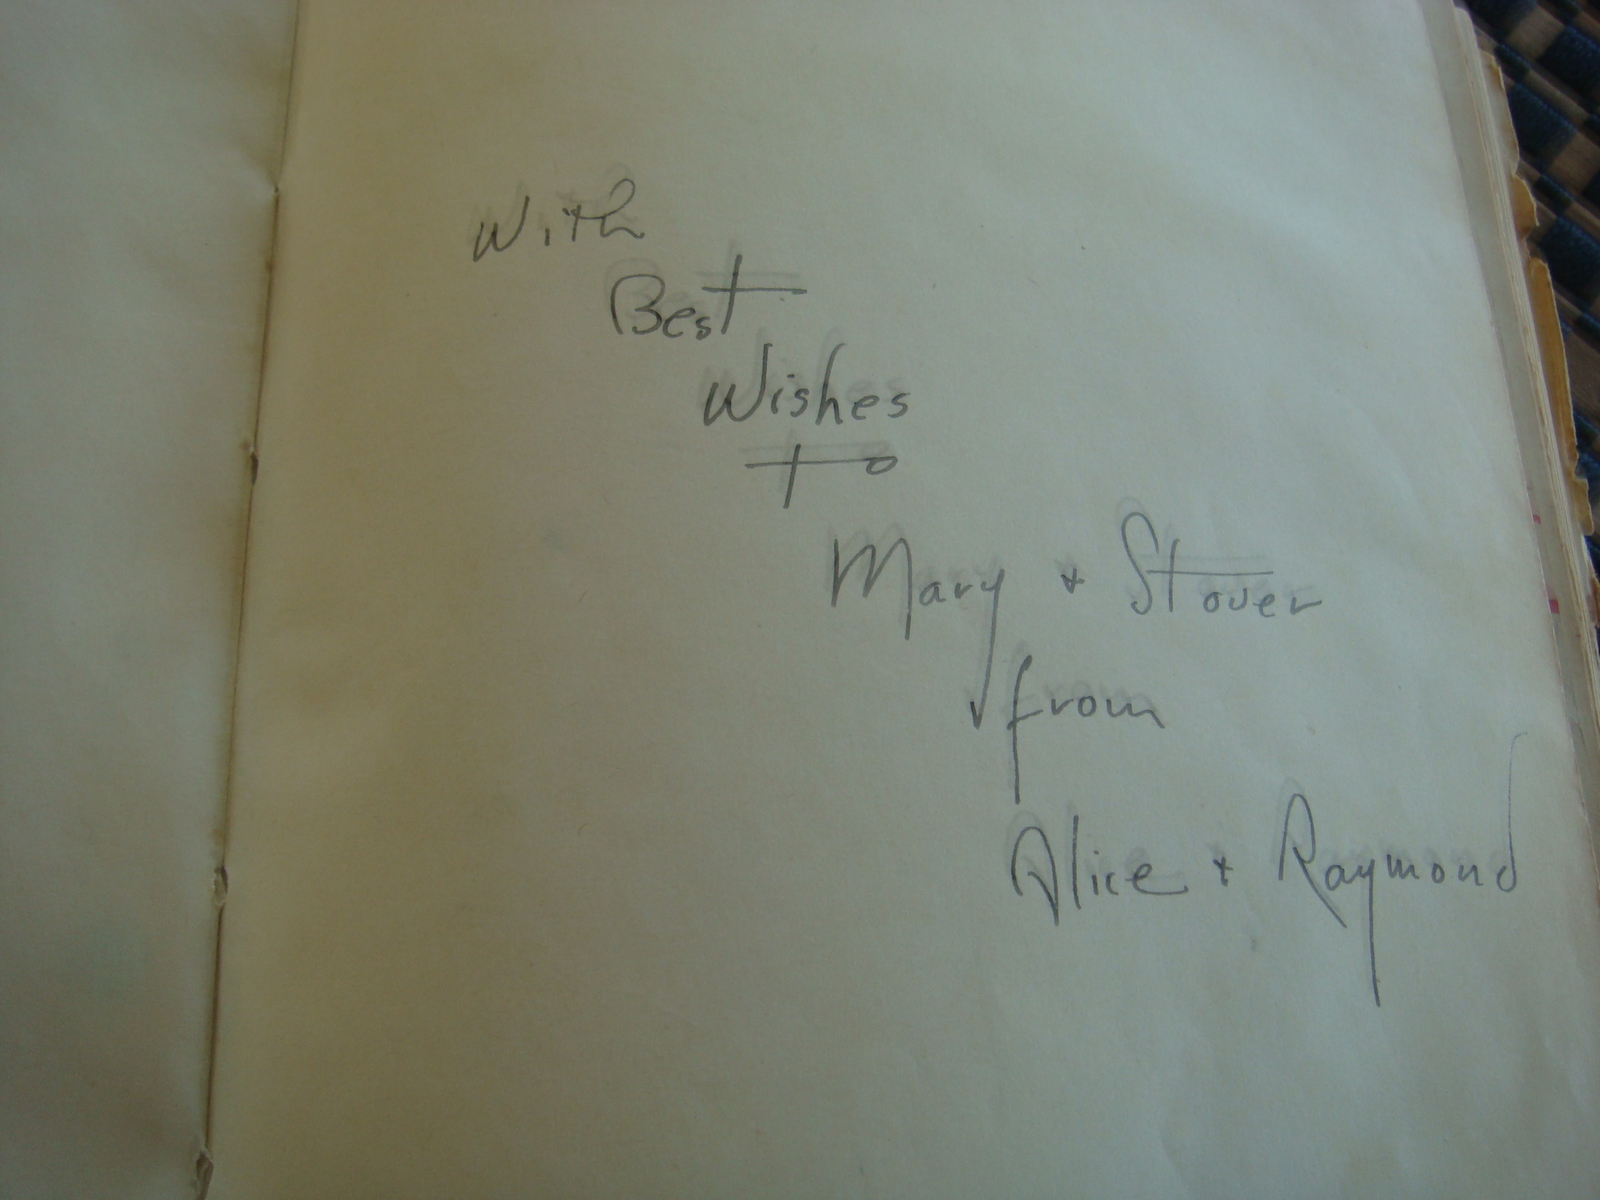 With
Best
Wishes
to
Mary + Stover
from
Alice + Raymond